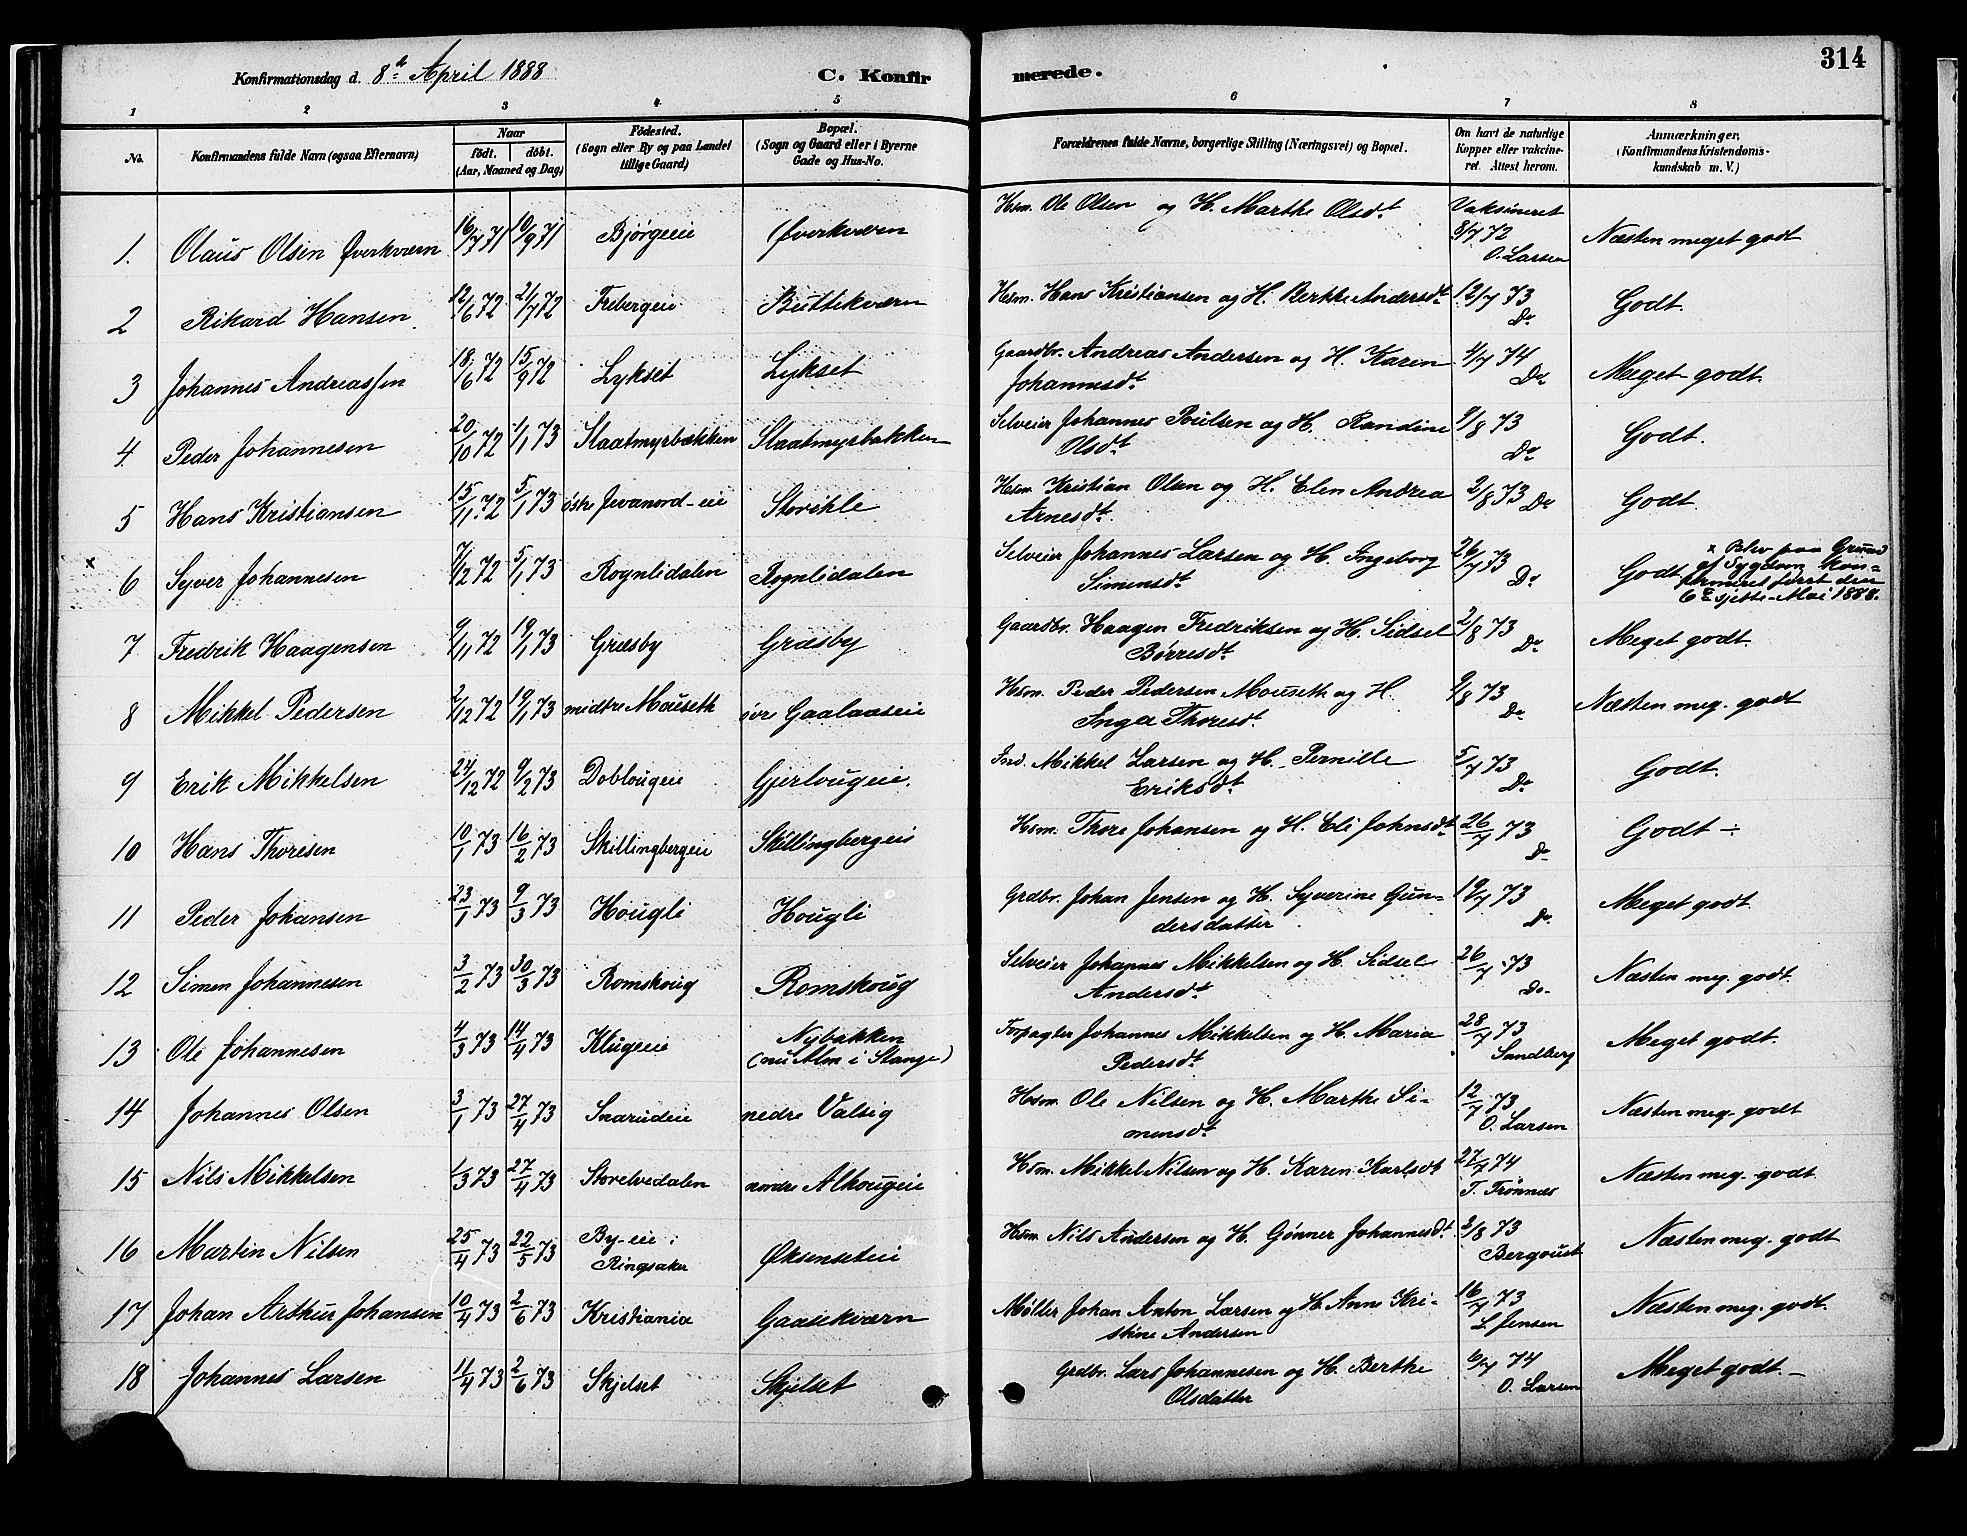 314
Konfirmationsdag d. 8de April 1888 C. Konfirmerede.
1 2 3 4 5 6 7 8
No. Konfirmandens fulde Navn (ogsaa Efternavn) Naar født. døbt. (Aar, Maaned og Dag) Fødested. (Sogn eller By og paa Landet tillige Gaard) Bopæl. (Sogn og Gaard eller i Byerne Gade og Hus-No. Forældrenes fulde Navne, borgerlige Stilling (Næringsvei) og Bopæl. Om havt de naturlige Kopper eller vakcineret. Attest herom. Anmærkninger, (Konfirmandens Kristendomskundskab m. V.)
1. Olaus Olsen Qverkværn 16/7 71 10/9 71 Bjørgeeie Qverkværn Hsm. Ole Olsen og H. Marthe Olsdt. Vaksineret 8/7 72 O. Larsen Næsten meget godt
2 Rikard Hansen 12/6 72 21/7 72 Frebergeie Buttekværn Hsm. Hans Kristiansen og H. Berthe Andersdt. 12/7 73 Do Godt.
3 Johannes Andreassen 18/6 72 15/9 72 Lykset Lykset Gaardbr. Andreas Andersen og H. Karen Johannesdt. 4/7 74 Do Meget godt.
4. Peder Johannesen 20/10 72 1/1 73 Slaatmyrbakken Slaatmyrbakken Selveier Johannes Poulsen og H. Randine Olsdt. 9/8 73 Do Godt.
5 Hans Kristiansen 15/11 72 5/1 73 østre Jevanord-eie Storihle Hsm. Kristian Olsen og H. Elen Andrea Arnesdt. 2/8 73 Do Godt.
x 6 Syver Johannesen 7/12 72 5/1 73 Rognlidalen Rognlidalen Selveier Johannes Larsen og H. Ingeborg Simensdt. 26/7 73 Do Godt x Blev paa Grund af Sygdom konfirmeret først den 6te sjette Mai 1888.
7 Fredrik Haagensen 9/11 72 19/1 73 Græsby Græsby Gaardbr. Haagen Fredriksen og H. Sidsel Børresdt. 2/8 73 Do Meget godt.
8 Mikkel Pedersen 2/12 72 19/1 73 midtre Mouseth øvre Gaalaaseie Hsm. Peder Pedersen Mouseth og H. Inger Thoresdt. 9/8 73 Do Næsten meg. godt
9 Erik Mikkelsen 24/12 72 9/2 73 Doblougeie Gjerlougeie. Ind. Mikkel Larsen og H. Pernille Eriksdt. 5/7 73 Do Godt.
10 Hans Thoresen 10/1 73 16/2 73 Skillingbergeie Skillingbergeie Hsm. Thore Johansen og H. Eli Johnsdt. 26/7 73 Do Godt ÷
11 Peder Johansen 23/1 73 9/3 73 Hougli Hougli Grdbr. Johan Jensen og H. Syverine Gundersdatter 19/7 73 Do Meget godt.
12 Simen Johannesen 3/2 73 30/3 73 Romskoug Romskoug Selveier Johannes Mikkelsen og H. Sidsel Andersdt. 26/7 73 Do Næsten meg. godt.
13 Ole Johannesen 4/3 73 14/4 73 Klugeeie Nybakken (nu Alm i Stange) Forpagter Johannes Mikkelsen og H. Maria Pedersdt. 28/7 73 Sandberg Meget godt.
14 Johannes Olsen 3/1 73 27/4 73 Snarudeie nedre Valsig Hsm. Ole Nilsen og H. Marthe Simensdt. 12/7 73 O. Larsen Næsten meg. godt
15 Nils Mikkelsen 1/3 73 27/4 73 Storelvedalen nordre Alkougeie Hsm. Mikkel Nilsen og H. Karen Karlsdt 27/7 74 T. Trønnæs Næsten meg. godt.
16 Martin Nilsen 25/4 73 22/5 73 By-eie i Ringsaker Øksenseteie Hsm. Nils Andersen og H. Gønner Johannesdt. 3/8 73 Bergoust Næsten meg. godt
17 Johan Arthur Johansen 10/4 73 2/6 73 Kristiania Gaasekværn Møller Johan Anton Larsen og H. Anne Kristine Andersen 16/7 73 L. Jensen Næsten meg. godt.
18 Johannes Larsen 11/4 73 2/6 73 Skjelset Skjelset Grdbr. Lars Johannesen og H. Berthe Olsdatter 6/7 74 O. Larsen Meget godt. –